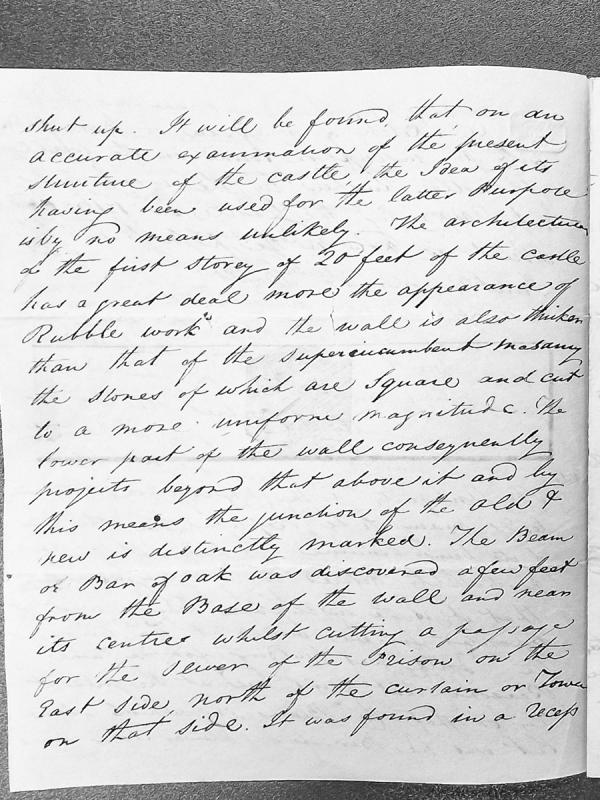 shut up. It will be found, that on an
accurate examination of the present
structure of the castle the Idea of its
having been used for the latter Purpose
is by no means unlikely. The architecture
of the first storey of 20 feet of the castle
has a great deal more the appearance of
Rubble work and the wall is also thicker
than that of the superincumbent masonry
the stones of which are Square and cut
to a more uniform magnitude. The
lower part of the wall consequently
projects beyond that above it and by
this means the junction of the old &
new is distinctly marked. The Beam
or Bar of oak was discovered a few feet
from the Base of the wall and near
its centre whilst cutting a passage
for the sewer of the Prison on the
East side, north of the curtain or Tower
on that side. It was found in a recess